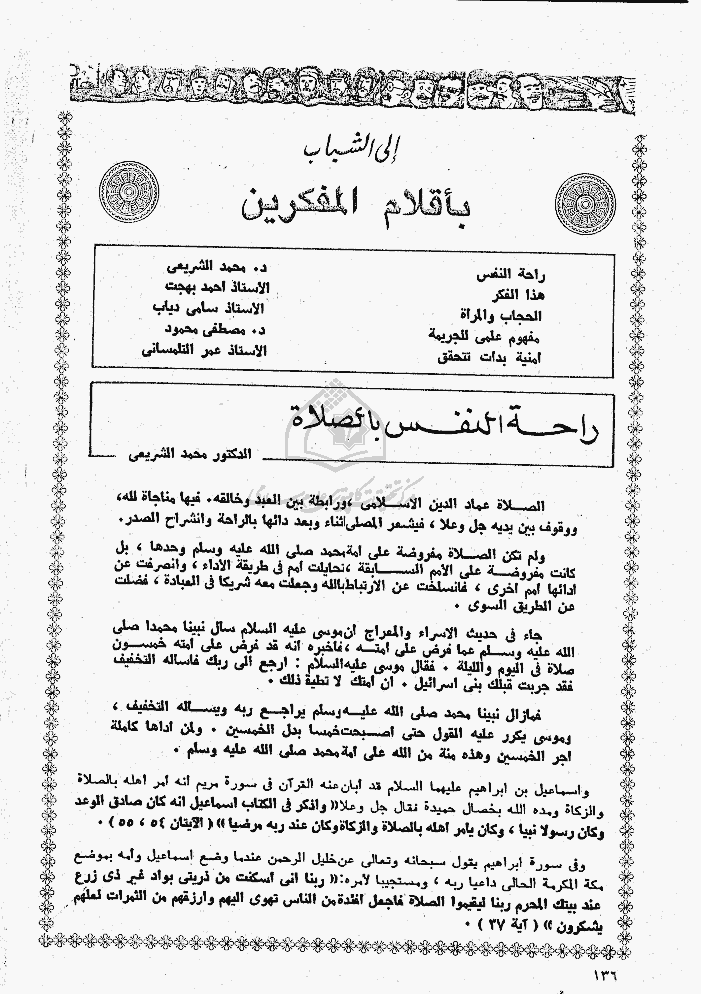 إلى الشباب
بأقلام المفكرين
راحة النفس د. محمد الشريعى
هذا الفكر الاستاذ احمد بهجت
الحجاب والمرأة الاستاذ سامى دياب
مفهوم علمى للجريمة د. مصطفى محمود
امنية بدات تتحقق الاستاذ عمر التلمسانى
راحة النفس بالصلاة
الدكتور محمد الشريعى
الصلاة عماد الدين الاسلامى ،ورابطة بين العبد وخالقه. فيها مناجاة لله،
ووقوف بين يديه جل وعلا ، فيشعر المصلى اثناء وبعد دائها بالراحة وانشراح الصدر.
ولم تكن الصلاة مفروضة على امة محمد صلى الله عليه وسلم وحدها ، بل
كانت مفروضة على الأمم السابقة ،تحايلت امم فى طريقة الأداء ، وانصرفت عن
ادائها امم اخرى ، فانسلخت عن الارتباط بالله وجعلت معه شريكا فى العبادة ، فضلت
عن الطريق السوى .
جاء فى حديث الاسراء والمعراج ان موسى عليه السلام سال نبينا محمدا صلى
الله عليه وسلم عما فرض على امته ،فاخبره انه قد فرض على امته خمسون
صلاة فى اليوم والليلة . فقال موسى عليه السلام : ارجع الى ربك فاساله التخفيف
فقد جربت قبلك بنى اسرائيل . ان امتك لا تطيق ذلك .
فمازال نبينا محمد صلى الله عليه وسلم يراجع ربه ويساله التخفيف ،
وموسى يكرر عليه القول حتى اصبحت خمسا بدل الخمسين . ولمن اداها كاملة
اجر الخمسين وهذه منة من الله على امة محمد صلى الله عليه وسلم .
واسماعيل بن ابراهيم عليهما السلام قد ابان عنه القرآن فى سورة مريم انه امر اهله بالصلاة
والزكاة ومده الله بخصال حميدة نقال جل وعلا« واذكر فى الكتاب اسماعيل انه كان صادق الوعد
وكان رسولا نبيا ، وكان يامر اهله بالصلاة والزكاة وكان عند ربه مرضيا » ( الآيتان ٥٤ ، ٥٥ ) .
وفى سورة ابراهيم يقول سبحانه وتعالى عن خليل الرحمن عندما وضع اسماعيل وأمه بموضع
مكة المكرمة الحالى داعيا ربه ، ومستجيبا لامره:« ربنا انى اسكنت من ذريتى بواد غير ذى زرع
عند بيتك المحرم ربنا ليقيموا الصلاة فاجعل افئدة من الناس تهوى اليهم وارزقهم من الثمرات لعلهم
يشكرون » ( آية ٣٧ ) .
١٣٦